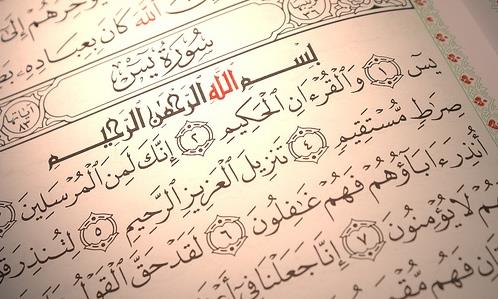 إِلَىٰ
ٱللَّهَ كَانَ بِعِبَادِهِۦ
سُورَةُ يسٓ
آياتها ٨٣
بِسْمِ ٱللَّهِ ٱلرَّحْمَٰنِ ٱلرَّحِيمِ
يسٓ ١ وَٱلْقُرْءَانِ ٱلْحَكِيمِ ٢ إِنَّكَ لَمِنَ ٱلْمُرْسَلِينَ
صِرَٰطٍ مُّسْتَقِيمٍ ٤ تَنزِيلَ ٱلْعَزِيزِ ٱلرَّحِيمِ ٥ لِتُنذِرَ
أُنذِرَ ءَابَآؤُهُمْ فَهُمْ غَٰفِلُونَ ٦ لَقَدْ حَقَّ ٱلْقَوْلُ
لَا يُؤْمِنُونَ ٧ إِنَّا جَعَلْنَا فِىٓ
فَهُم